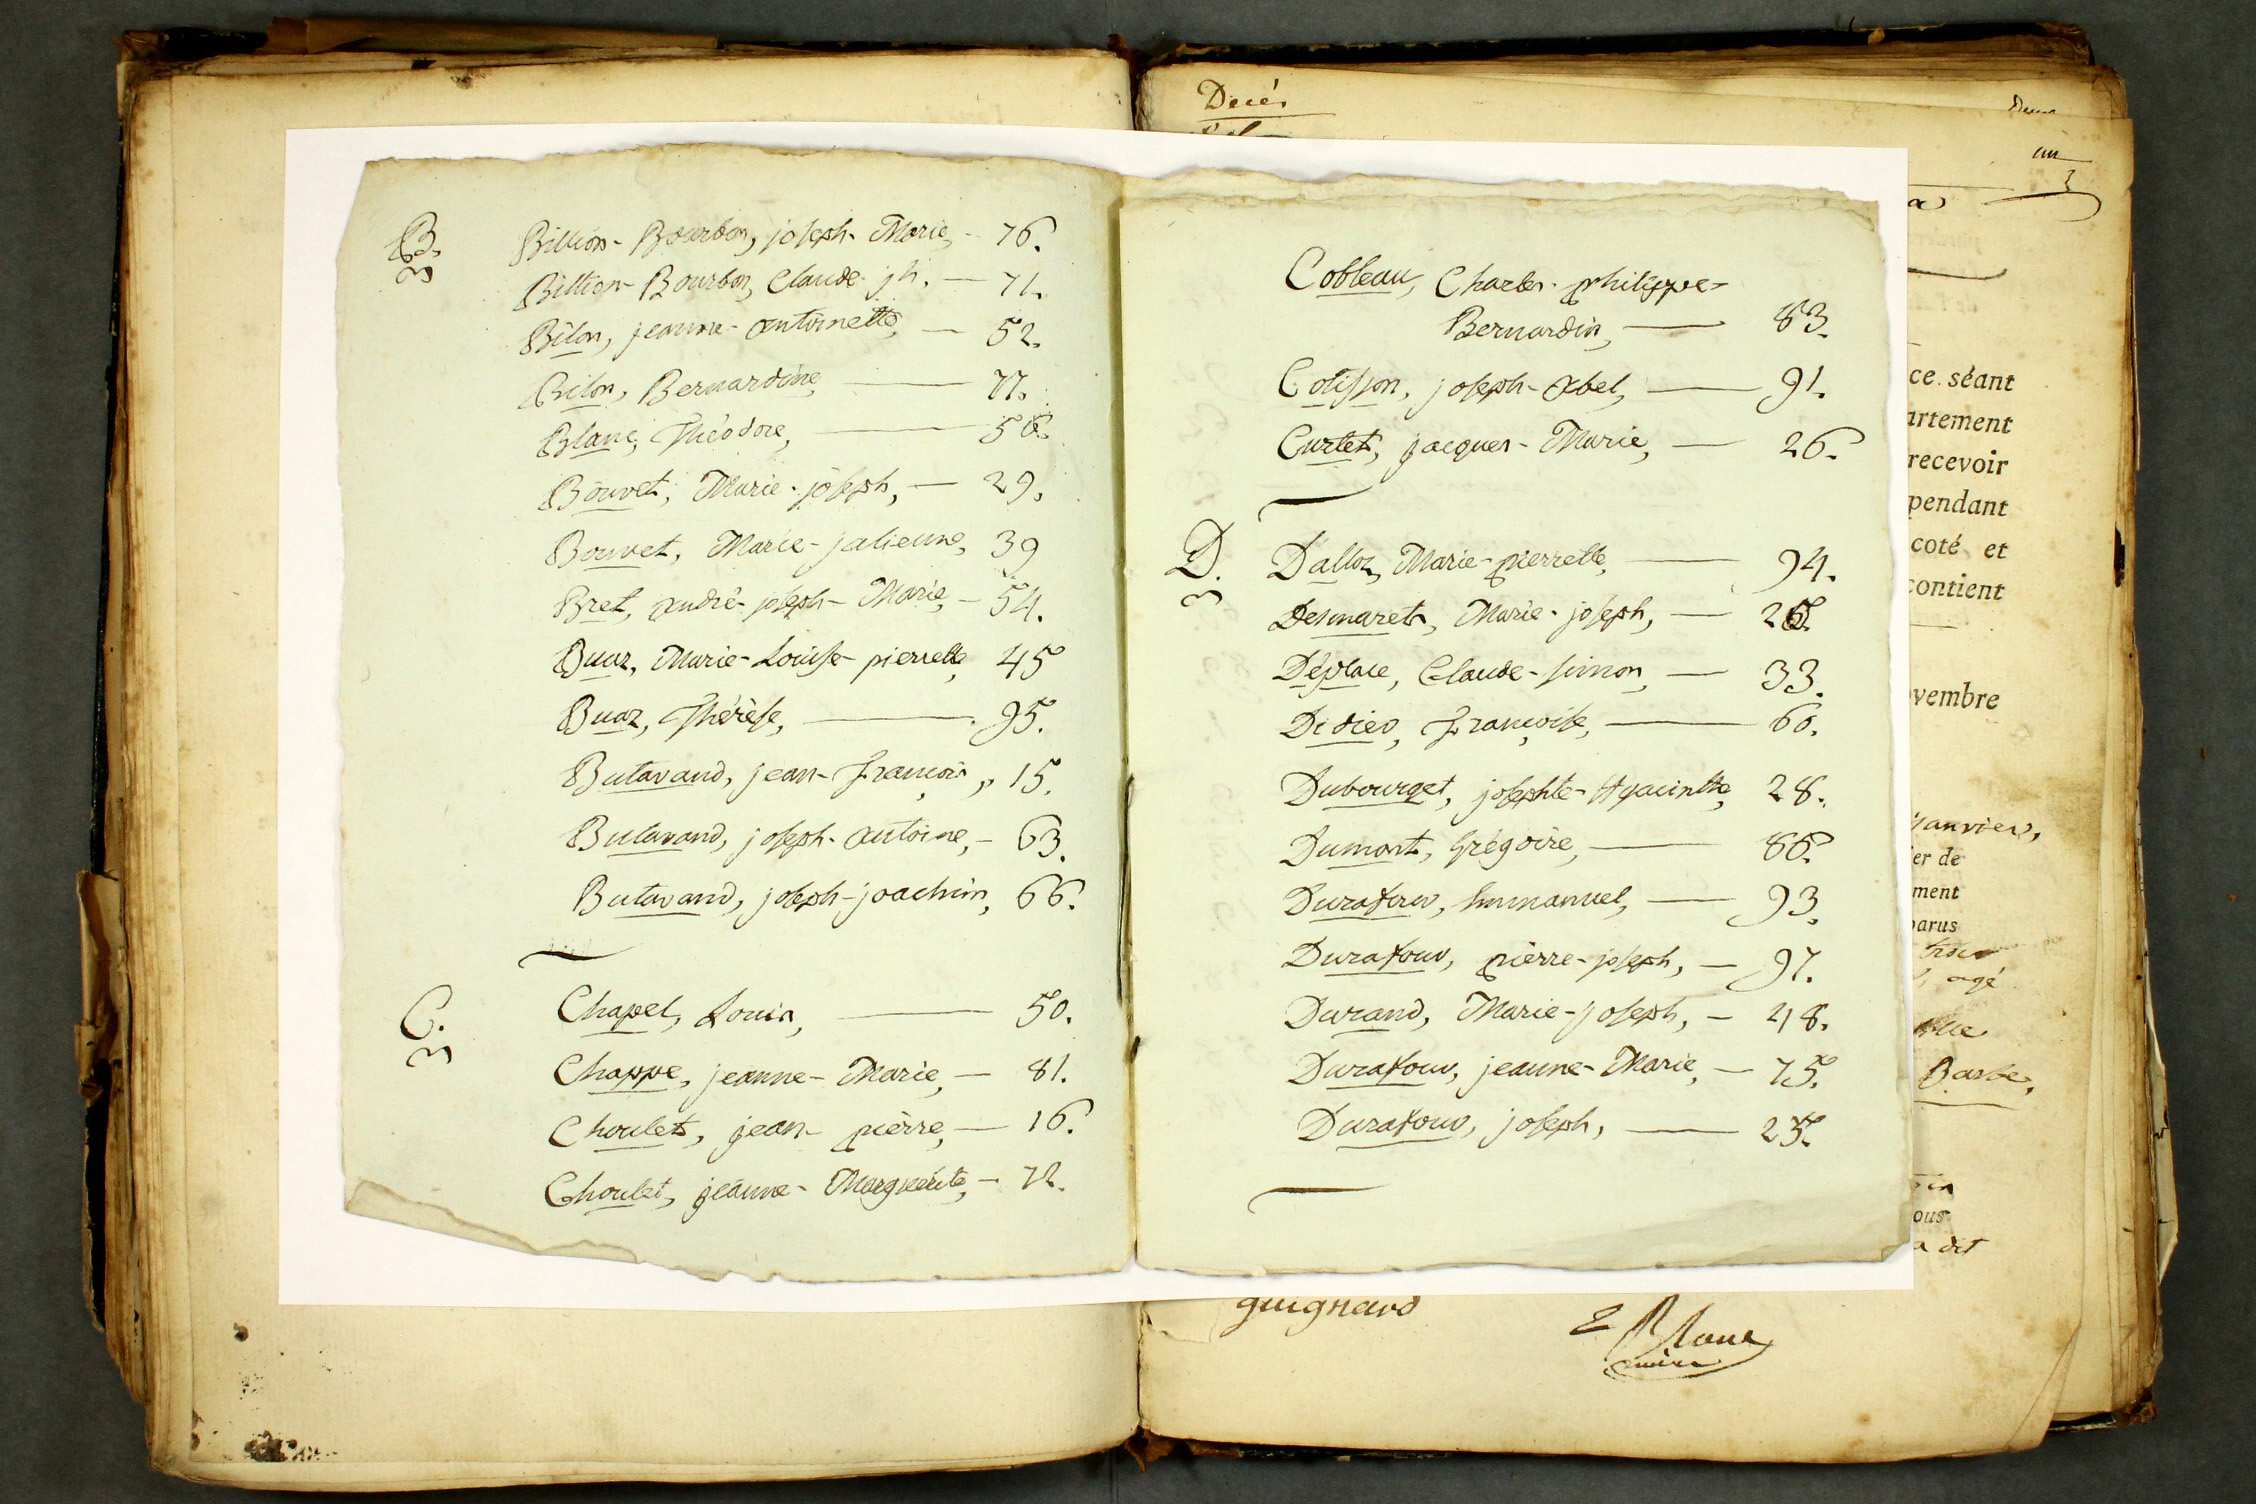 B.
Billion-Bourbon, joseph-Marie, - 76.
Billion-Bourbon, Claude jh. — 71.
Bilon, jeanne-antoinette, — 52.
Bilon, Bernardine, — 77.
Blanc, Théodore, — 56.
Bouvet, Marie-joseph, — 29.
Bouvet, Marie-julienne, 39
Bret, andré-joseph-Marie, - 54.
Buaz, Marie-Louise-pierrette, 45
Buaz, Thérèse, — 95.
Butavand, jean-François, 15.
Butavand, joseph-antoine, - 63.
Butavand, joseph-joachim, 66.
C.
Chapel, Louis, — 50.
Chappe, jeanne-Marie, — 81.
Choulet, jean-pièrre, — 16.
Choulet, jeanne-Marguerite, — 72.
Décès
un
Cobleau, Charles-philippe-
Bernardin, — 83.
Cotisson, joseph-abel, — 91.
Curtet, jacques-Marie, — 26.
D.
Dalloz, Marie-pierrette, — 94.
Desmarets, Marie-joseph, —
Déplace, Claude-simon, — 33.
Didier, Françoise, — 60.
Dubourget, josephte-Hyacinthe, 28.
Dumont, Grégoire, — 86.
Durafour, Emmanuel, — 93.
Durafour, pièrre-joseph, — 97.
Durand, Marie-joseph, — 48.
Durafour, jeanne-Marie, — 75.
Durafour, joseph, — 25.
ce séant
artement
recevoir
pendant
coté et
contient
vembre
janvier,
ier de
ment
parus
agé
Barbe,
ous
a dit
guignard
Blanc
maire